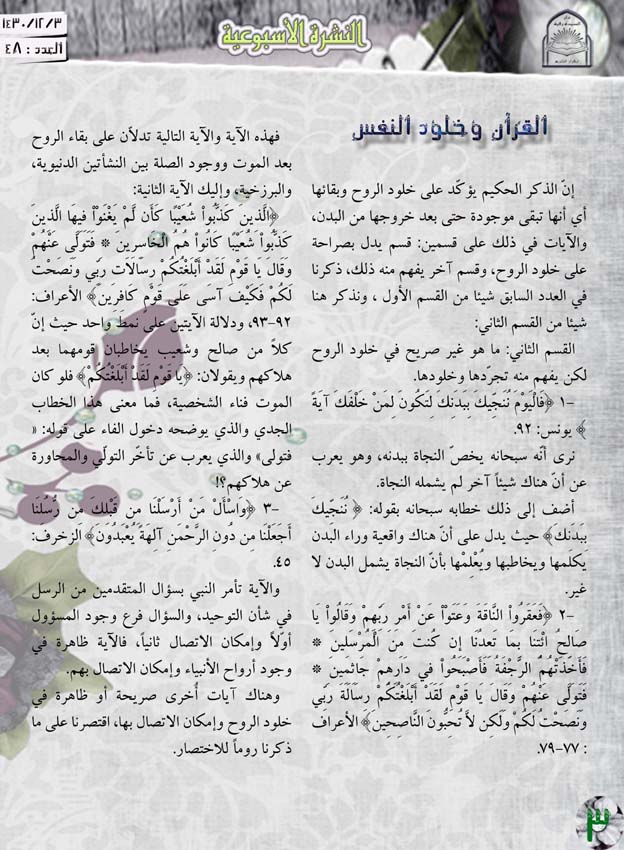 ١٤٣٠/١٢/٣
العدد : ٤٨
النشرة الأسبوعية
القرآن وخلود النفس
إنّ الذكر الحكيم يؤكّد على خلود الروح وبقائها
أي أنها تبقى موجودة حتى بعد خروجها من البدن،
والآيات في ذلك على قسمين: قسم يدل بصراحة
على خلود الروح، وقسم آخر يفهم منه ذلك، ذكرنا
في العدد السابق شيئا من القسم الأول ، ونذكر هنا
شيئا من القسم الثاني:
القسم الثاني: ما هو غير صريح في خلود الروح
لكن يفهم منه تجرّدها وخلودها.
١- ﴿فَالْيَوْمَ نُنَجِّيكَ بِبَدَنِكَ لِتَكُونَ لِمَنْ خَلْفَكَ آيَةً
﴾ يونس: ٩٢.
نرى أنّه سبحانه يخصّ النجاة ببدنه، وهو يعرب
عن أنّ هناك شيئاً آخر لم يشمله النجاة.
أضف إلى ذلك خطابه سبحانه بقوله: ﴿ نُنَجِّيكَ
بِبَدَنِكَ﴾ حيث يدل على أنّ هناك واقعية وراء البدن
يكلّمها ويخاطبها ويُعْلِمْها بأنّ النجاة يشمل البدن لا
غير.
٢- ﴿فَعَقَرُواْ النَّاقَةَ وَعَتَوْاْ عَنْ أَمْرِ رَبِّهِمْ وَقَالُواْ يَا
صَالِحُ ائْتِنَا بِمَا تَعِدُنَا إِن كُنتَ مِنَ الْمُرْسَلِينَ *
فَأَخَذَتْهُمُ الرَّجْفَةُ فَأَصْبَحُواْ فِي دَارِهِمْ جَاثِمِينَ *
فَتَوَلَّى عَنْهُمْ وَقَالَ يَا قَوْمِ لَقَدْ أَبْلَغْتُكُمْ رِسَالَةَ رَبِّي
وَنَصَحْتُ لَكُمْ وَلَكِن لاَّ تُحِبُّونَ النَّاصِحِينَ﴾ الأعراف
: ٧٧-٧٩.
فهذه الآية والآية التالية تدلأن على بقاء الروح
بعد الموت ووجود الصلة بين النشأتين الدنيوية،
والبرزخية، وإليك الآية الثانية:
﴿الَّذِينَ كَذَّبُواْ شُعَيْبًا كَأَن لَّمْ يَغْنَوْاْ فِيهَا الَّذِينَ
كَذَّبُواْ شُعَيْبًا كَانُواْ هُمُ الْخَاسِرِينَ * فَتَوَلَّى عَنْهُمْ
وَقَالَ يَا قَوْمِ لَقَدْ أَبْلَغْتُكُمْ رِسَالاَتِ رَبِّي وَنَصَحْتُ
لَكُمْ فَكَيْفَ آسَى عَلَى قَوْمٍ كَافِرِينَ﴾ الأعراف:
٩٢-٩٣، ودلالة الآيتين على نمط واحد حيث إنّ
كلاً من صالح وشعيب يخاطبان قومهما بعد
هلاكهم ويقولان: ﴿يَا قَوْمِ لَقَدْ أَبْلَغْتُكُمْ﴾ فلو كان
الموت فناء الشخصية، فما معنى هذا الخطاب
الجدي والذي يوضحه دخول الفاء على قوله: «
فتولى» والذي يعرب عن تأخّر التولّي والمحاورة
عن هلاكهم؟!
٣- ﴿وَاسْأَلْ مَنْ أَرْسَلْنَا مِن قَبْلِكَ مِن رُّسُلِنَا
أَجَعَلْنَا مِن دُونِ الرَّحْمَنِ آلِهَةً يُعْبَدُونَ﴾ الزخرف:
٤٥.
والآية تأمر النبي بسؤال المتقدمين من الرسل
في شأن التوحيد، والسؤال فرع وجود المسؤول
أولاً وإمكان الاتصال ثانياً، فالآية ظاهرة في
وجود أرواح الأنبياء وإمكان الاتصال بهم.
وهناك آيات أُخرى صريحة أو ظاهرة في
خلود الروح وإمكان الاتصال بها، اقتصرنا على ما
ذكرنا روماً للاختصار.
٣